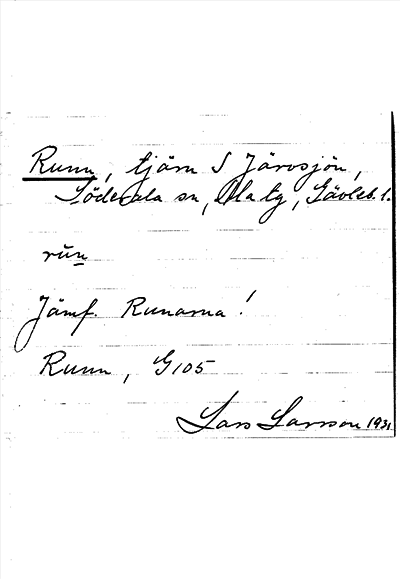 Runn, tjärn S Järvsjön,
Söderala sn, Ala tg, Gävleb. l.
rūn
Jämf. Runarna!
Runn, G105
Lars Larsson 1931